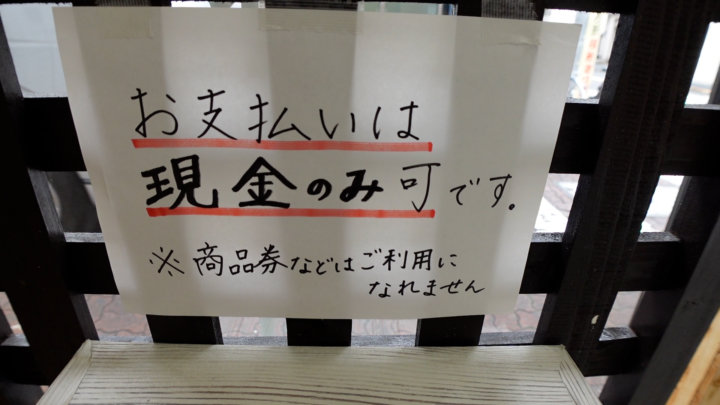 お支払いは
現金のみ可です。
※商品券などはご利用に
なれません